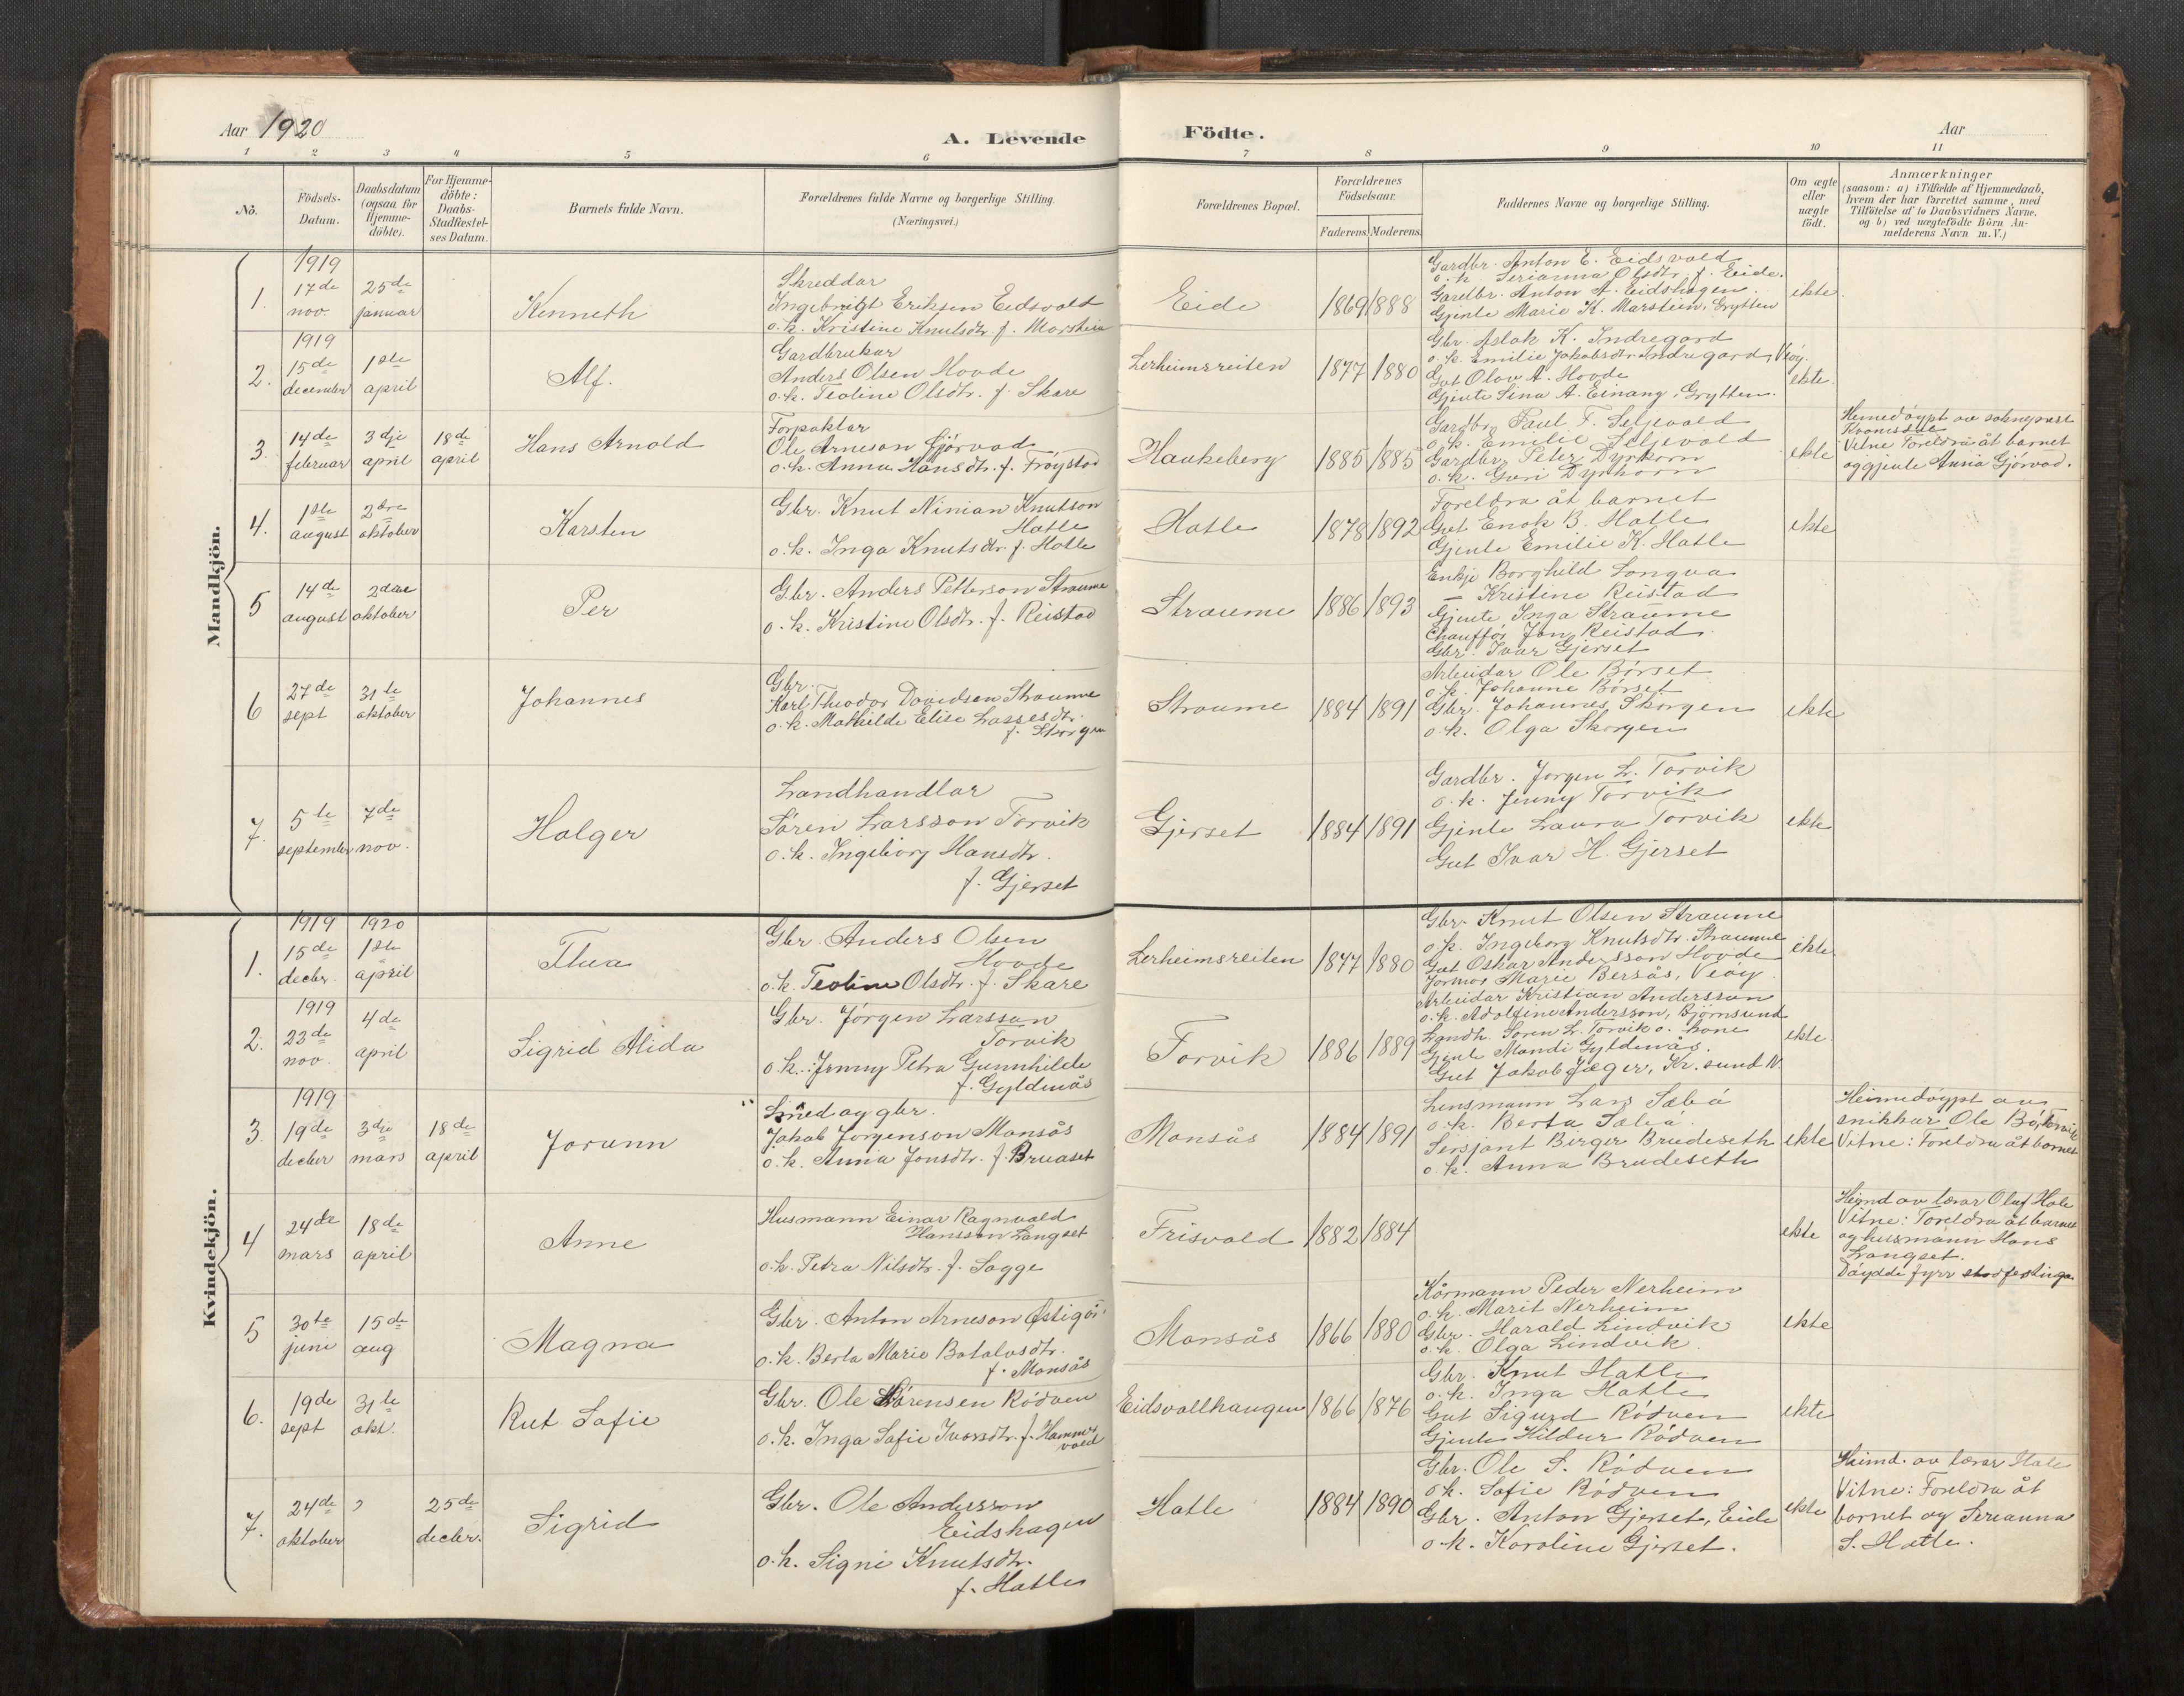 Aar 1920
A. Levende Födte.
Aar
1 2 3 4 5 6 7 8 9 10 11
No.
Födsels-Datum.
Daabsdatum (ogsaa for Hjemme-döbte).
For Hjemme-döbte: Daabs-Stadfæstel-ses Datum.
Barnets fulde Navn.
Forældrenes fulde Navne og borgerlige Stilling.
(Næringsvei.)
Forældrenes Bopæl.
Forældrenes Födselsaar.
Faderens. Moderens.
Faddernes Navne og borgerlige Stilling.
Om ægte eller uægte födt.
Anmærkninger
(saasom: a) i Tilfælde af Hjemmedaab,
hvem der har forrettet samme, med
Tilföielse af to Daabsvidners Navne.
og b) ved uægtefödte Börn An-
melderens Navn m. V.)
Mandkjön.
1. 1919 17de nov. 25de januar
Kenneth
Skreddar
Ingebrigt Eriksen Eidsvold
o.k. Kristine Knutsdtr. f. Marstein
Eide 1869 1888
Gardbr. Anton E. Eidsvold
o.k. Serianna Olsdtr. f. Eide.
Gardbr. Anton A. Eidshagen.
Gjente Marie K. Marstein, Grytten
ekte
2. 1919 15de december 1ste april
Alf.
Gardbrukar
Anders Olsen Hovde
o.k. Teoline Olsdtr. f. Skare
Lerheimsreiten 1877 1880
Gbr. Aslak K. Indregard
o.k. Emilie Jakobsdtr. Indregard, Veøy.
Gut Olov A. Hovde
Gjente Lina A. Einang, Grytten.
ekte.
3. 14de februar 3dje april 18de april
Hans Arnold
Forpaktar
Ole Arneson Gjørvad
o.k. Anna Hansdtr. f. Frøystad
Haukeberg 1885 1885
Gardbr. Paul F. Seljevold
o.k. Emilie Seljevold
Gardbr. Peter Dyrkorn
o.k. Guri Dyrkorn
ekte
Hemedøypt av soknprest
Kvamsdal
Vitne Foreldra åt barnet
og gjente Anna Gjørvad.
4. 1ste august 2dre oktober
Karsten
Gbr. Knut Ninian Knutson
Hatle
o.k. Inga Knutsdtr. f. Hatle
Hatle 1878 1892
Foreldra åt barnet
Gut Enok B. Hatle
Gjente Emilie K. Hatle
ekte
5 14de august 2dre oktober
Per
Gbr. Anders Petterson Straume
o.k. Kristine Olsdtr. f. Reistad
Straume 1886 1893
Enkje Borghild Longva
— Kristine Reistad
Gjente Inga Straume
Chauffør Jon Reistad.
Gbr. Ivar Gjerset
6 27de sept 31te oktober
Johannes
Gbr.
Karl Theodor Davidsen Straume
o.k. Mathilde Elise Lassesdtr.
f. Skorgen
Straume 1884 1891
Arbeidar Ole Børset
o.k. Johanne Børset
Gbr. Johannes Skorgen
o.k. Olga Skorgen
ekte
7. 5te september 7de nov.
Holger
Landhandlar
Søren Larsson Torvik
o.k. Ingeborg Hansdtr.
f. Gjerset
Gjerset 1884 1891
Gardbr. Jørgen L. Torvik
o.k. Jenny Torvik
Gjente Laura Torvik
Gut Ivar H. Gjerset
ekte
Kvindekjön.
1. 1919 15de decbr. 1920 1ste april
Thea
Gbr. Anders Olsen
Hovde
o.k. Teoline Olsdtr. f. Skare
Lerheimsreiten 1877 1880
Gbr. Knut Olsen Straume
o.k. Ingeborg Knutsdtr. Straume
Gut Oskar Andersson Hovde
Jormor Marie Bersås, Veøy
ekte
2. 1919 23de nov. 4de april
Sigrid Alida
Gbr. Jørgen Larsson
Torvik
o.k. Jenny Petra Gunnhilde
f. Gyldenås
Torvik 1886 1889
Arbeidar Kristian Andersson
o.k. Adolfine Andersson, Bjørnsund
Landh. Søren L. Torvik o. kone
Gjente Mandi Gyldenås.
Gut Jakob Jæger, Kr.sund N.
ekte.
3. 1919 19de decber 3dje mars 18de april
Jorunn
Smed og gbr.
Jakob Jørgenson Monsås
o.k. Anna Jonsdtr. f. Bruaset
Monsås 1884 1891
Lensmann Lars Sæbø
o.k. Berta Sæbø.
Sersjant Birger Brudeseth
o.k. Anna Brudeseth
ekte
Heimedøypt av
snikkar Ole B. Torvik
Vitne: Foreldra åt barnet
4 24de mars 18de april
Anne
Husmann Einar Ragnvald
Hansson Langset
o.k. Petra Nilsdtr. f. Sogge
Frisvold 1882 1884
ekte
Heimd av lærar Olaf Hole
Vitne: Foreldra åt barnet
og husmann Hans
Langset.
Døydde fyrr stadfestinga
5 30te juni 15de aug
Magna
Gbr. Anton Arneson Østigår
o.k. Berta Marie Botolvsdtr.
f. Monsås
Monsås 1866 1880
Kårmann Peder Nerheim
o.k. Marit Nerheim
Gbr. Harald Lindvik
o.k. Olga Lindvik.
ekte
6. 19de sept 31te okt.
Rut Sofie
Gbr. Ole Sørensen Rødven
o.k. Inga Sofie Iversdtr. f. Hammervold
Eidsvollhaugen 1866 1876
Gbr. Knut Hatle
o.k. Inga Hatle
Gut Sigurd Rødven
Gjente Hildur Rødven
ekte
7. 24de oktober ? 25de decbr.
Sigrid
Gbr. Ole Andersson
Eidshagen
o.k. Signe Knutsdtr.
f. Hatle
Hatle 1884 1890
Gbr. Ole S. Rødven
o.k. Sofie Rødven
Gbr. Anton Gjerset, Eide
o.k. Karoline Gjerset.
ekte
Heimd. av lærar Hole
Vitne: Foreldra åt
bornet og Serianna
S. Hatle.